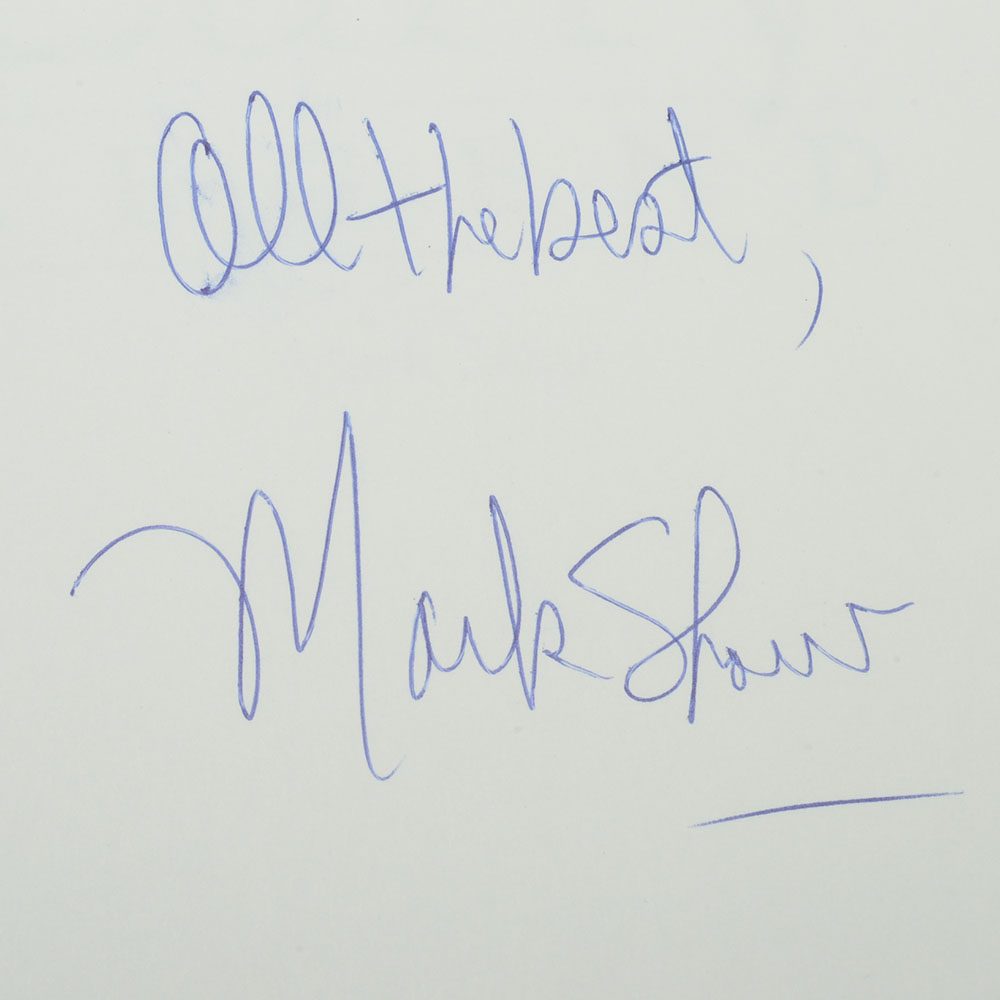 All the best,
Mark Shaw